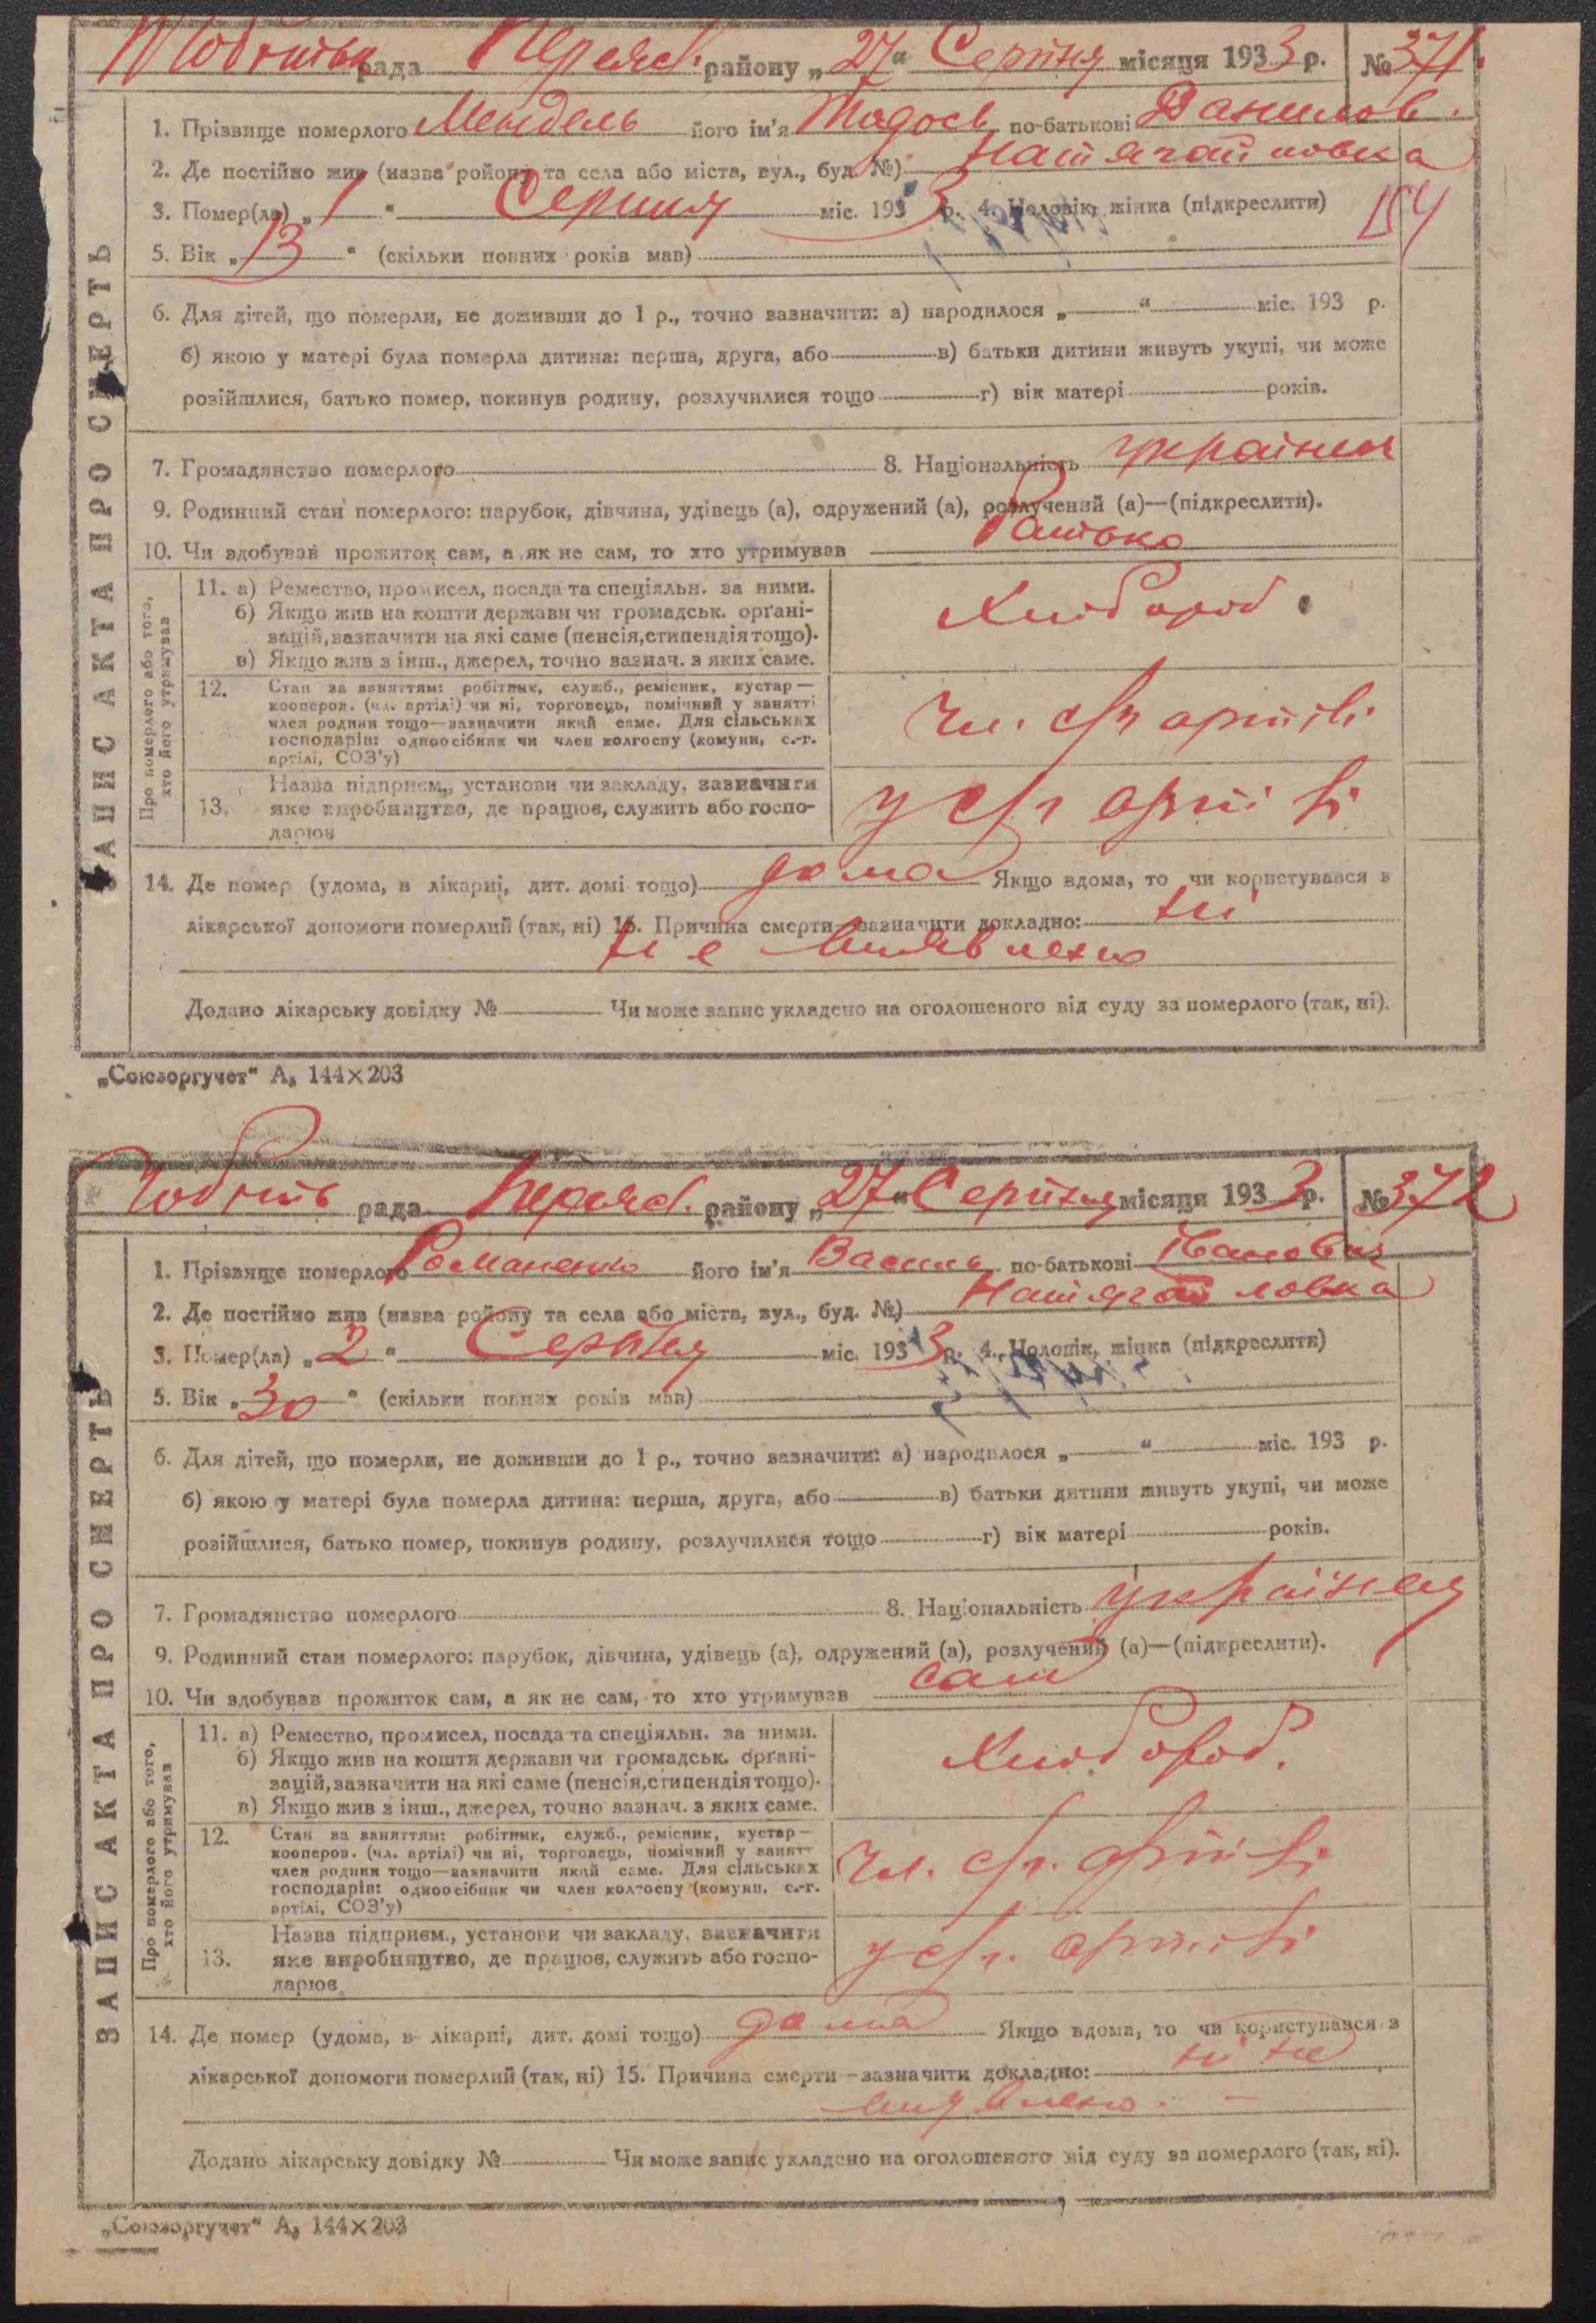 рада Переясл. району „27“ Серпня місяця 1933 р. № 371.
1. Прізвище померлого Мендель його ім'я Тодось по-батькові Данилов.
2. Де постійно жив (назва ройону та села або міста, вул., буд. №)
3. Помер(ла) „1“ Серпня міс. 1933 р. 4. Чоловік, жінка (підкреслити) 154
5. Вік „13“ (скільки повних років мав)
6. Для дітей, що померли, не доживши до 1 р., точно зазначити: а) народилося „ “ міс. 193 р.
б) якою у матері була померла дитина: перша, друга, або в) батьки дитини живуть укупі, чи може
розійшлися, батько помер, покинув родину, розлучилися тощо г) вік матері років.
7. Громадянство померлого 8. Національність
9. Родинний стан померлого: парубок, дівчина, удівець (а), одружений (а), розлучений (а)—(підкреслити).
10. Чи здобував прожиток сам, а як не сам, то хто утримував батько
ЗАПИС АКТА ПРО СМЕРТЬ
Про померлого або того,
хто його утримував
11. а) Ремество, промисел, посада та спеціяльн. за ними.
б) Якщо жив на кошти держави чи громадськ. органі-
зацій, зазначити на які саме (пенсія, стипендія тощо).
в) Якщо жив з інш., джерел, точно зазнач. з яких саме.
Хлібороб.
12. Стан за заняттям: робітник, служб., ремісник, кустар—
кооперов. (чл. артілі) чи ні, торговець, помічний у занятті
член родини тощо—зазначити який саме. Для сільських
господарів: одноосібник чи член колгоспу (комуни, с.-г.
артілі, СОЗ'у)
чл. с/г артілі
13. Назва підприєм., установи чи закладу, зазначити
яке виробництво, де працює, служить або госпо-
дарює
у с/г артілі
14. Де помер (удома, в лікарні, дит. домі тощо) дома Якщо вдома, то чи користувався з
лікарської допомоги померлий (так, ні) 15. Причина смерти—зазначити докладно: ні
не виявлено
Додано лікарську довідку № Чи може запис укладено на оголошеного від суду за померлого (так, ні).
„Союзоргучет“ А₅ 144×203
рада Переясл. району „27“ Серпня місяця 1933 р. № 372
1. Прізвище померлого Романенко його ім'я Василь по-батькові Іванович
2. Де постійно жив (назва ройону та села або міста, вул., буд. №)
3. Помер(ла) „2“ Серпня міс. 1933 р. 4. Чоловік, жінка (підкреслити)
5. Вік „30“ (скільки повних років мав)
6. Для дітей, що померли, не доживши до 1 р., точно зазначити: а) народилося „ “ міс. 193 р.
б) якою у матері була померла дитина: перша, друга, або в) батьки дитини живуть укупі, чи може
розійшлися, батько помер, покинув родину, розлучилися тощо г) вік матері років.
7. Громадянство померлого 8. Національність
9. Родинний стан померлого: парубок, дівчина, удівець (а), одружений (а), розлучений (а)—(підкреслити).
10. Чи здобував прожиток сам, а як не сам, то хто утримував сам
ЗАПИС АКТА ПРО СМЕРТЬ
Про померлого або того,
хто його утримував
11. а) Ремество, промисел, посада та спеціяльн. за ними.
б) Якщо жив на кошти держави чи громадськ. органі-
зацій, зазначити на які саме (пенсія, стипендія тощо).
в) Якщо жив з інш., джерел, точно зазнач. з яких саме.
Хлібороб.
12. Стан за заняттям: робітник, служб., ремісник, кустар—
кооперов. (чл. артілі) чи ні, торговець, помічний у занятт
член родини тощо—зазначити який саме. Для сільських
господарів: одноосібник чи член колгоспу (комуни, с.-г.
артілі, СОЗ'у)
чл. с/г. артілі
13. Назва підприєм., установи чи закладу, зазначити
яке виробництво, де працює, служить або госпо-
дарює
у с/г. артілі
14. Де помер (удома, в лікарні, дит. домі тощо) дома Якщо вдома, то чи користувався з
лікарської допомоги померлий (так, ні) 15. Причина смерти—зазначити докладно: ні не
виявлено.
Додано лікарську довідку № Чи може запис укладено на оголошеного від суду за померлого (так, ні).
„Союзоргучет“ А₅ 144×203